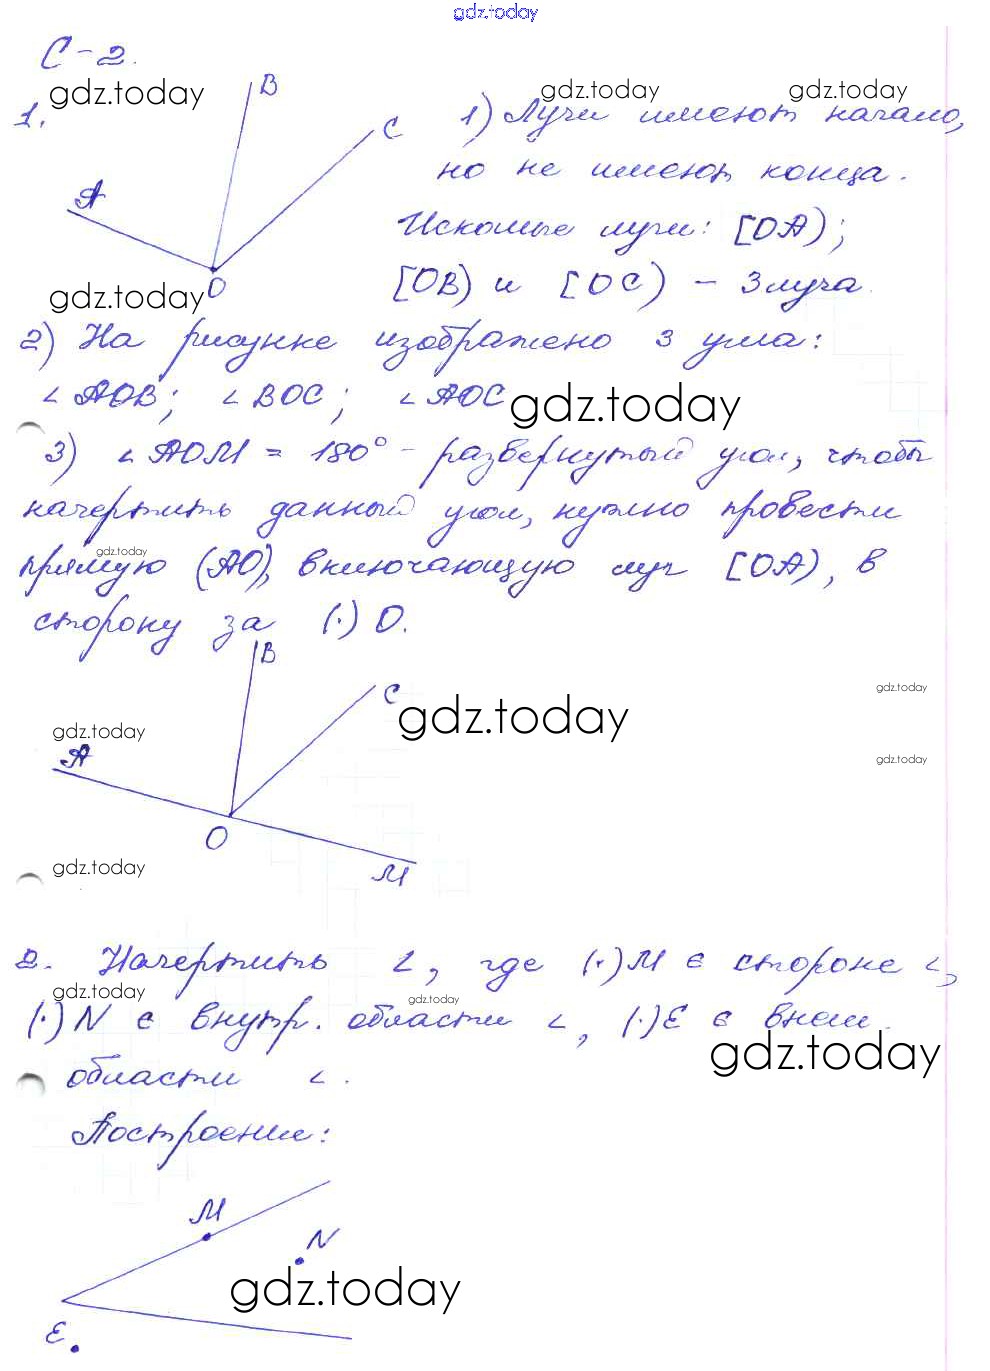 gdz.today
С-2.
gdz.today
gdz.today gdz.today
1.
B
C
A
O
1) Лучи имеют начало,
но не имеют конца.
Искомые лучи: [OA);
[OB) и [OC) – 3 луча.
gdz.today
2) На рисунке изображено 3 угла:
∠AOB; ∠BOC; ∠AOC
gdz.today
3) ∠AOM = 180° - развернутый угол, чтобы
начертить данный угол, нужно провести
gdz.today
прямую (AO), включающую луч [OA), в
сторону за (·) O.
B
C
gdz.today
gdz.today
gdz.today
gdz.today
A
O
M
gdz.today
2. Начертить ∠, где (·) M ∈ стороне ∠,
gdz.today gdz.today
(·) N ∈ внутр. области ∠, (·) E ∈ внеш.
gdz.today
области ∠.
Построение:
M
N
gdz.today
E